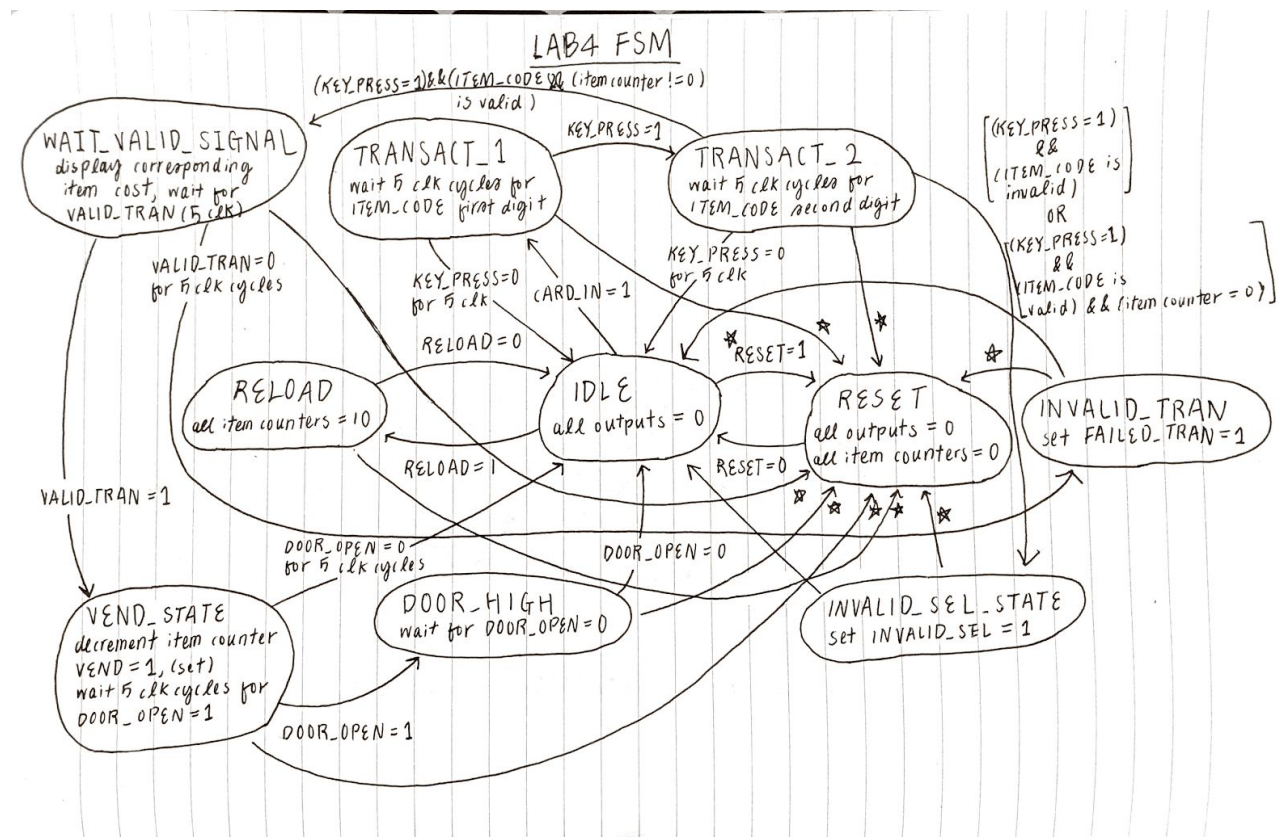 LAB4 FSM
(KEY_PRESS=1)&&(ITEM_CODE && (item counter !=0)
is valid)
WAIT_VALID_SIGNAL
display corresponding
item cost, wait for
VALID_TRAN (5 clk)
TRANSACT_1
wait 5 clk cycles for
ITEM_CODE first digit
KEY_PRESS=1
TRANSACT_2
wait 5 clk cycles for
ITEM_CODE second digit
(KEY_PRESS=1)
&&
(ITEM_CODE is
invalid)
OR
(KEY_PRESS=1)
&&
(ITEM_CODE is
valid) && (item counter = 0)
VALID_TRAN=0
for 5 clk cycles
KEY_PRESS=0
for 5 clk
CARD_IN = 1
KEY_PRESS=0
for 5 clk
RELOAD = 0
RESET=1
RELOAD
all item counters = 10
IDLE
all outputs = 0
RESET
all outputs = 0
all item counters = 0
INVALID_TRAN
set FAILED_TRAN=1
RELOAD = 1
RESET=0
VALID_TRAN = 1
DOOR_OPEN = 0
for 5 clk cycles
DOOR_OPEN = 0
VEND_STATE
decrement item counter
VEND = 1, (set)
wait 5 clk cycles for
DOOR_OPEN = 1
DOOR_HIGH
wait for DOOR_OPEN=0
INVALID_SEL_STATE
set INVALID_SEL = 1
DOOR_OPEN = 1